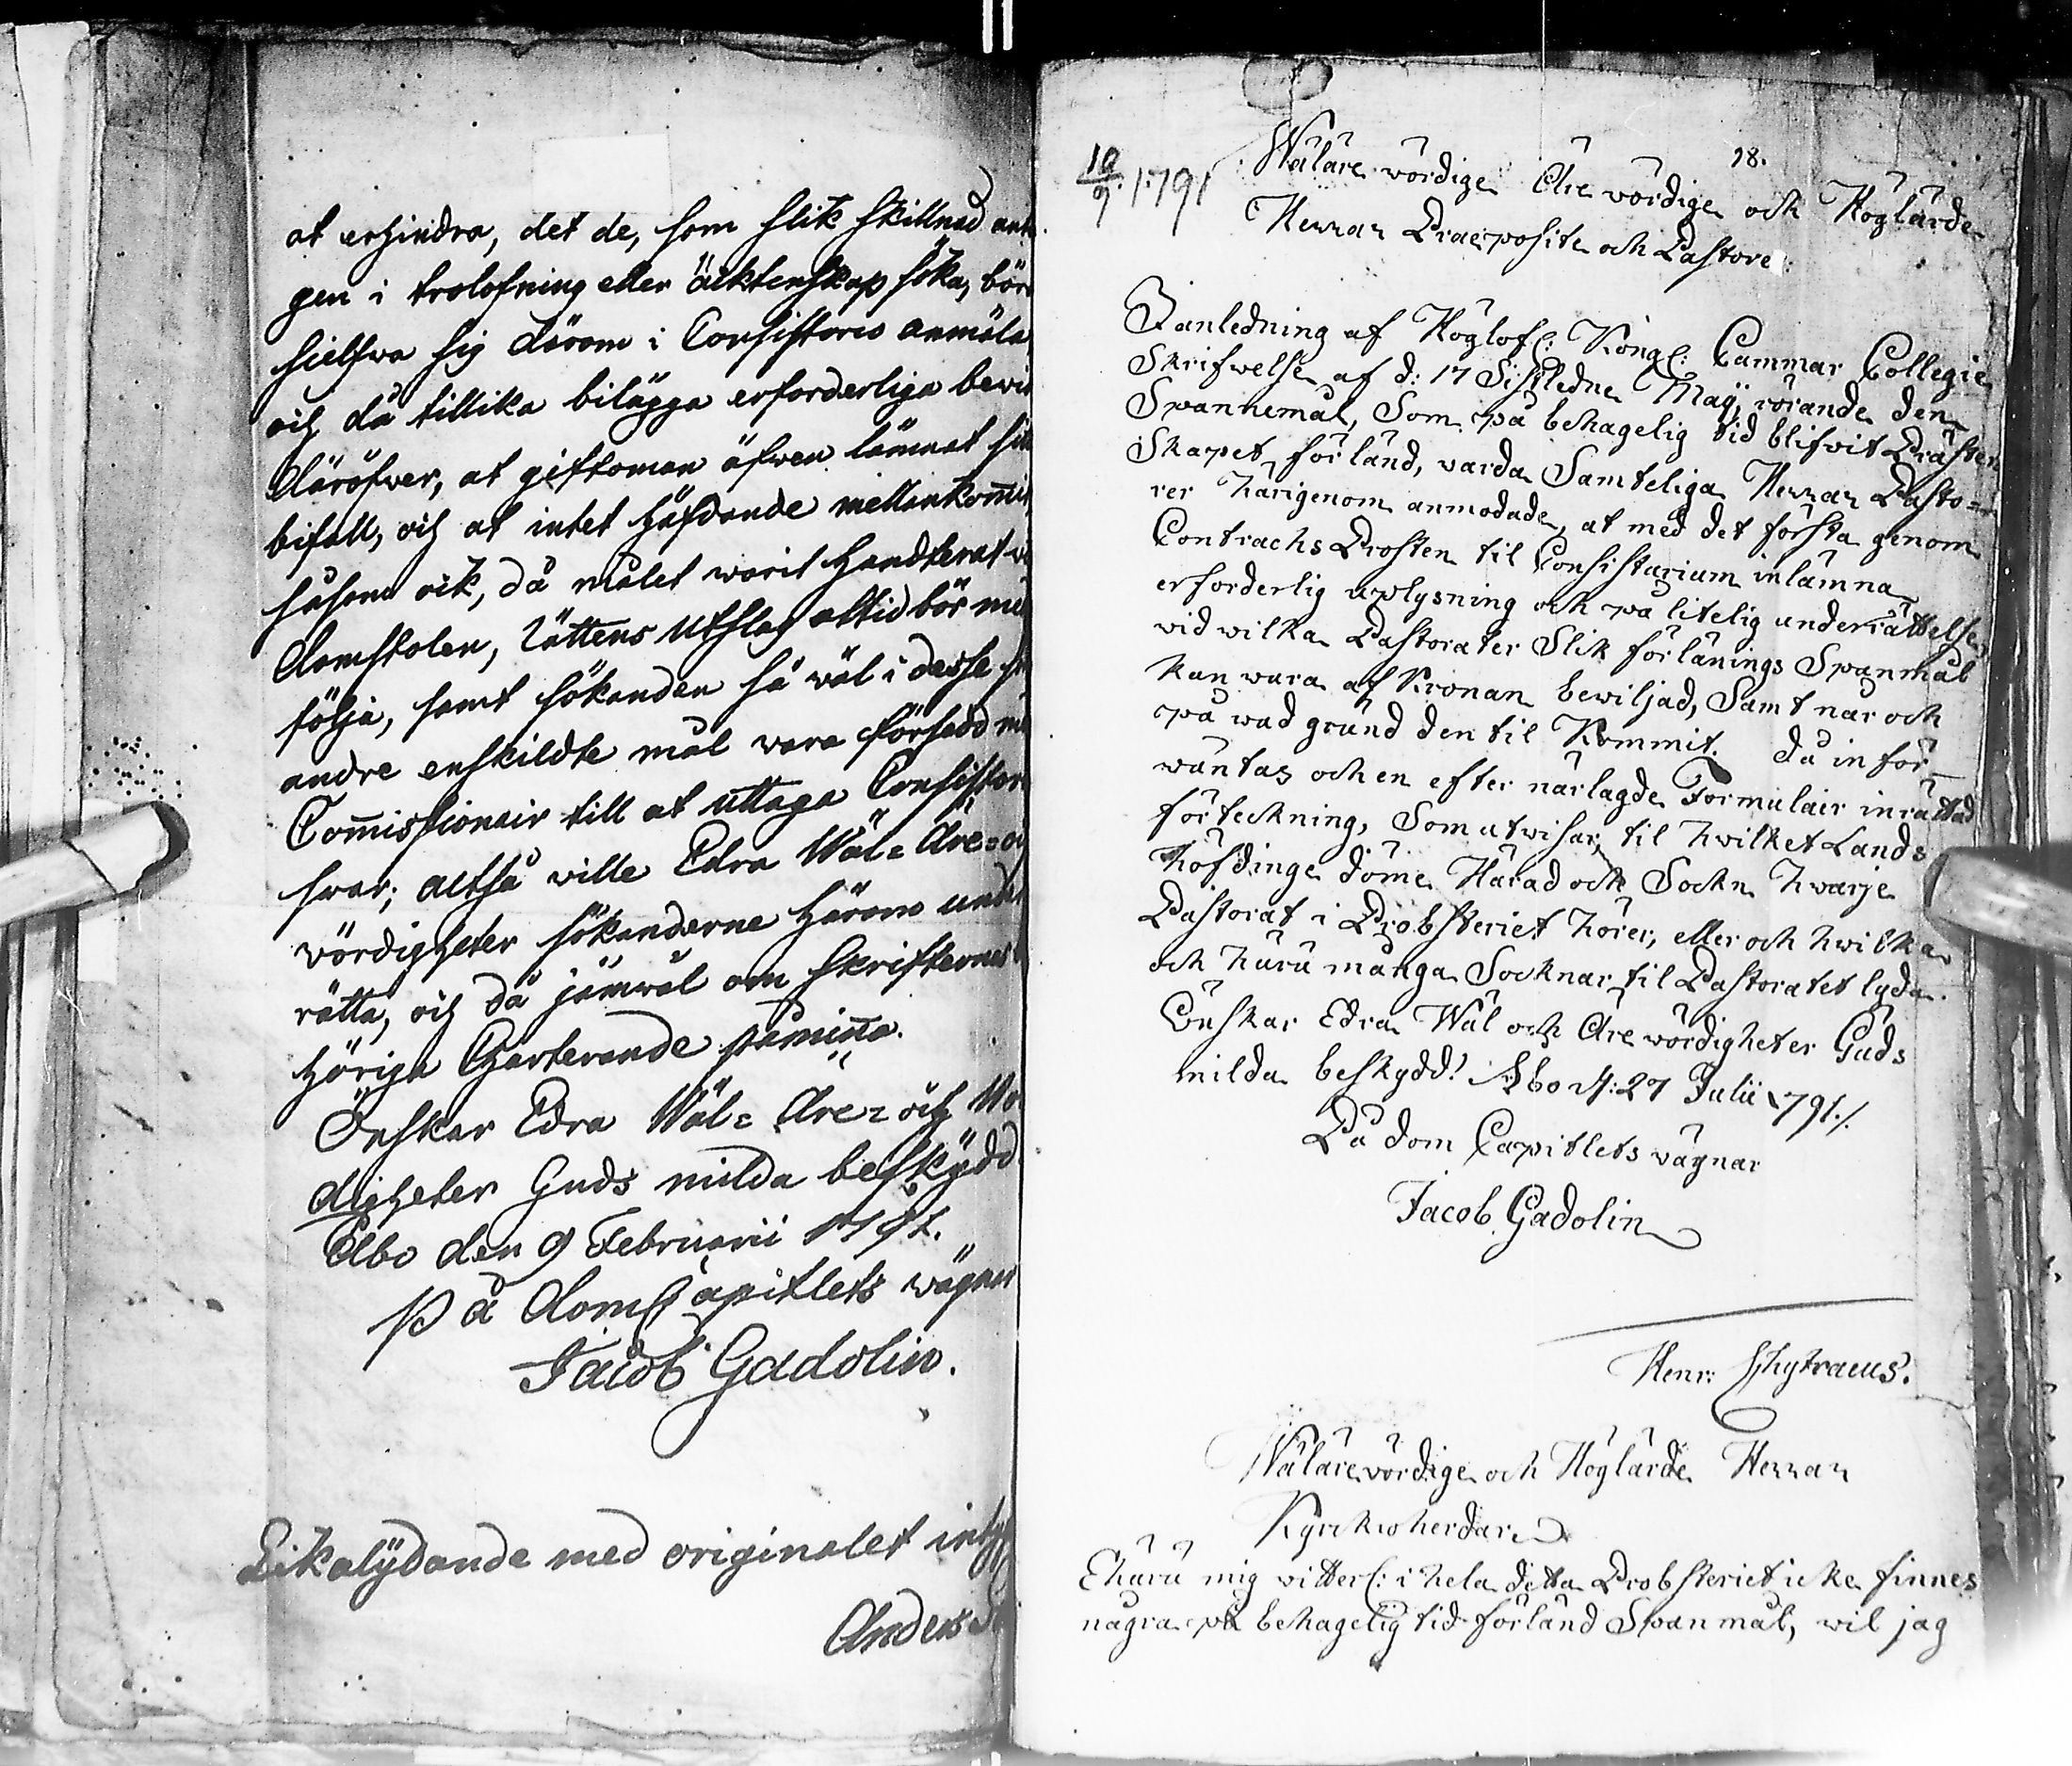 at erhindra, det de, som slik skillnad ant
gen i trolofning eller äcktenskap söka, bör
sielfwa sig därom i Consistorio anmäla
och då tillika bilägga erforderliga bewis
däröfwer, at giftoman äfwen lämnat sit
bifall, och at intet häfdande mellankom̄it
såsom ock, då målet warit handterat wi
domstolen, Rättens Utslag altid bör med
följa, samt sökanden så wäl i desse som
andre enskildte mål vara försedd med
Com̄issionair till at uttaga Consistor
swar; altså wille Edra Wäl= Äre= o
wördigheter sökanderne härom under
rätta, och då jämwäl om skrifternes
hörige Charterande påmin̄a.
Önskar Edra Wäl= Äre= och Wö
digheter Guds milda beskydd
Åbo den 9 Februarii 1791.
På DomCapitlets wägnar
Jacob Gadolin.
Likalydande med originalet intyg
Anders
18.
10/9 1791 Wälärewördige Ärewördige och Höglärde
Herrar Præposite och Pastorer
I anledning af Höglofl: Kongl: Cammar Collegie
Skrifwelse af d: 17 Sistledne Maÿ, rörande den
Spannemål, Som på behagelig tid blifvit Präster
Skapet förländ, warda Samteliga Herrar Pasto=
rer härigenom anmodade, at med det första genom
Contrachs Prosten til Consistorium inlämna
erforderlig uplysning och på litelig underrättelse,
vid wilka Pastorater Slik förlänings Spanmål
kan wara af Kronan bewiljad, Samt när och
på wad grund den til Kommit. Då inför
wäntas och en efter närlagde Formulair inrättad
förteckning, Som utwisar, til hwilket Lands
höfdinge döme Härad och Sockn hwarje
Pastorat i Probsteriet hörer, eller och hwilka
och huru många Socknar til Pastoratet lyda.
Önskar Edra Wäl och Äre wördigheter Guds
milda beskydd! Åbo d: 27 Julii 1791./.
På Dom Capitlets vägnar
Jacob Gadolin
Henr: Chytraeus.
Wälärewördige och Höglärde Herrar
Kyrckioherdar
Ehuru mig vitterl: i hela detta Probsteriet icke finnes
några på behagelig tid förländ Spanmål, wil jag